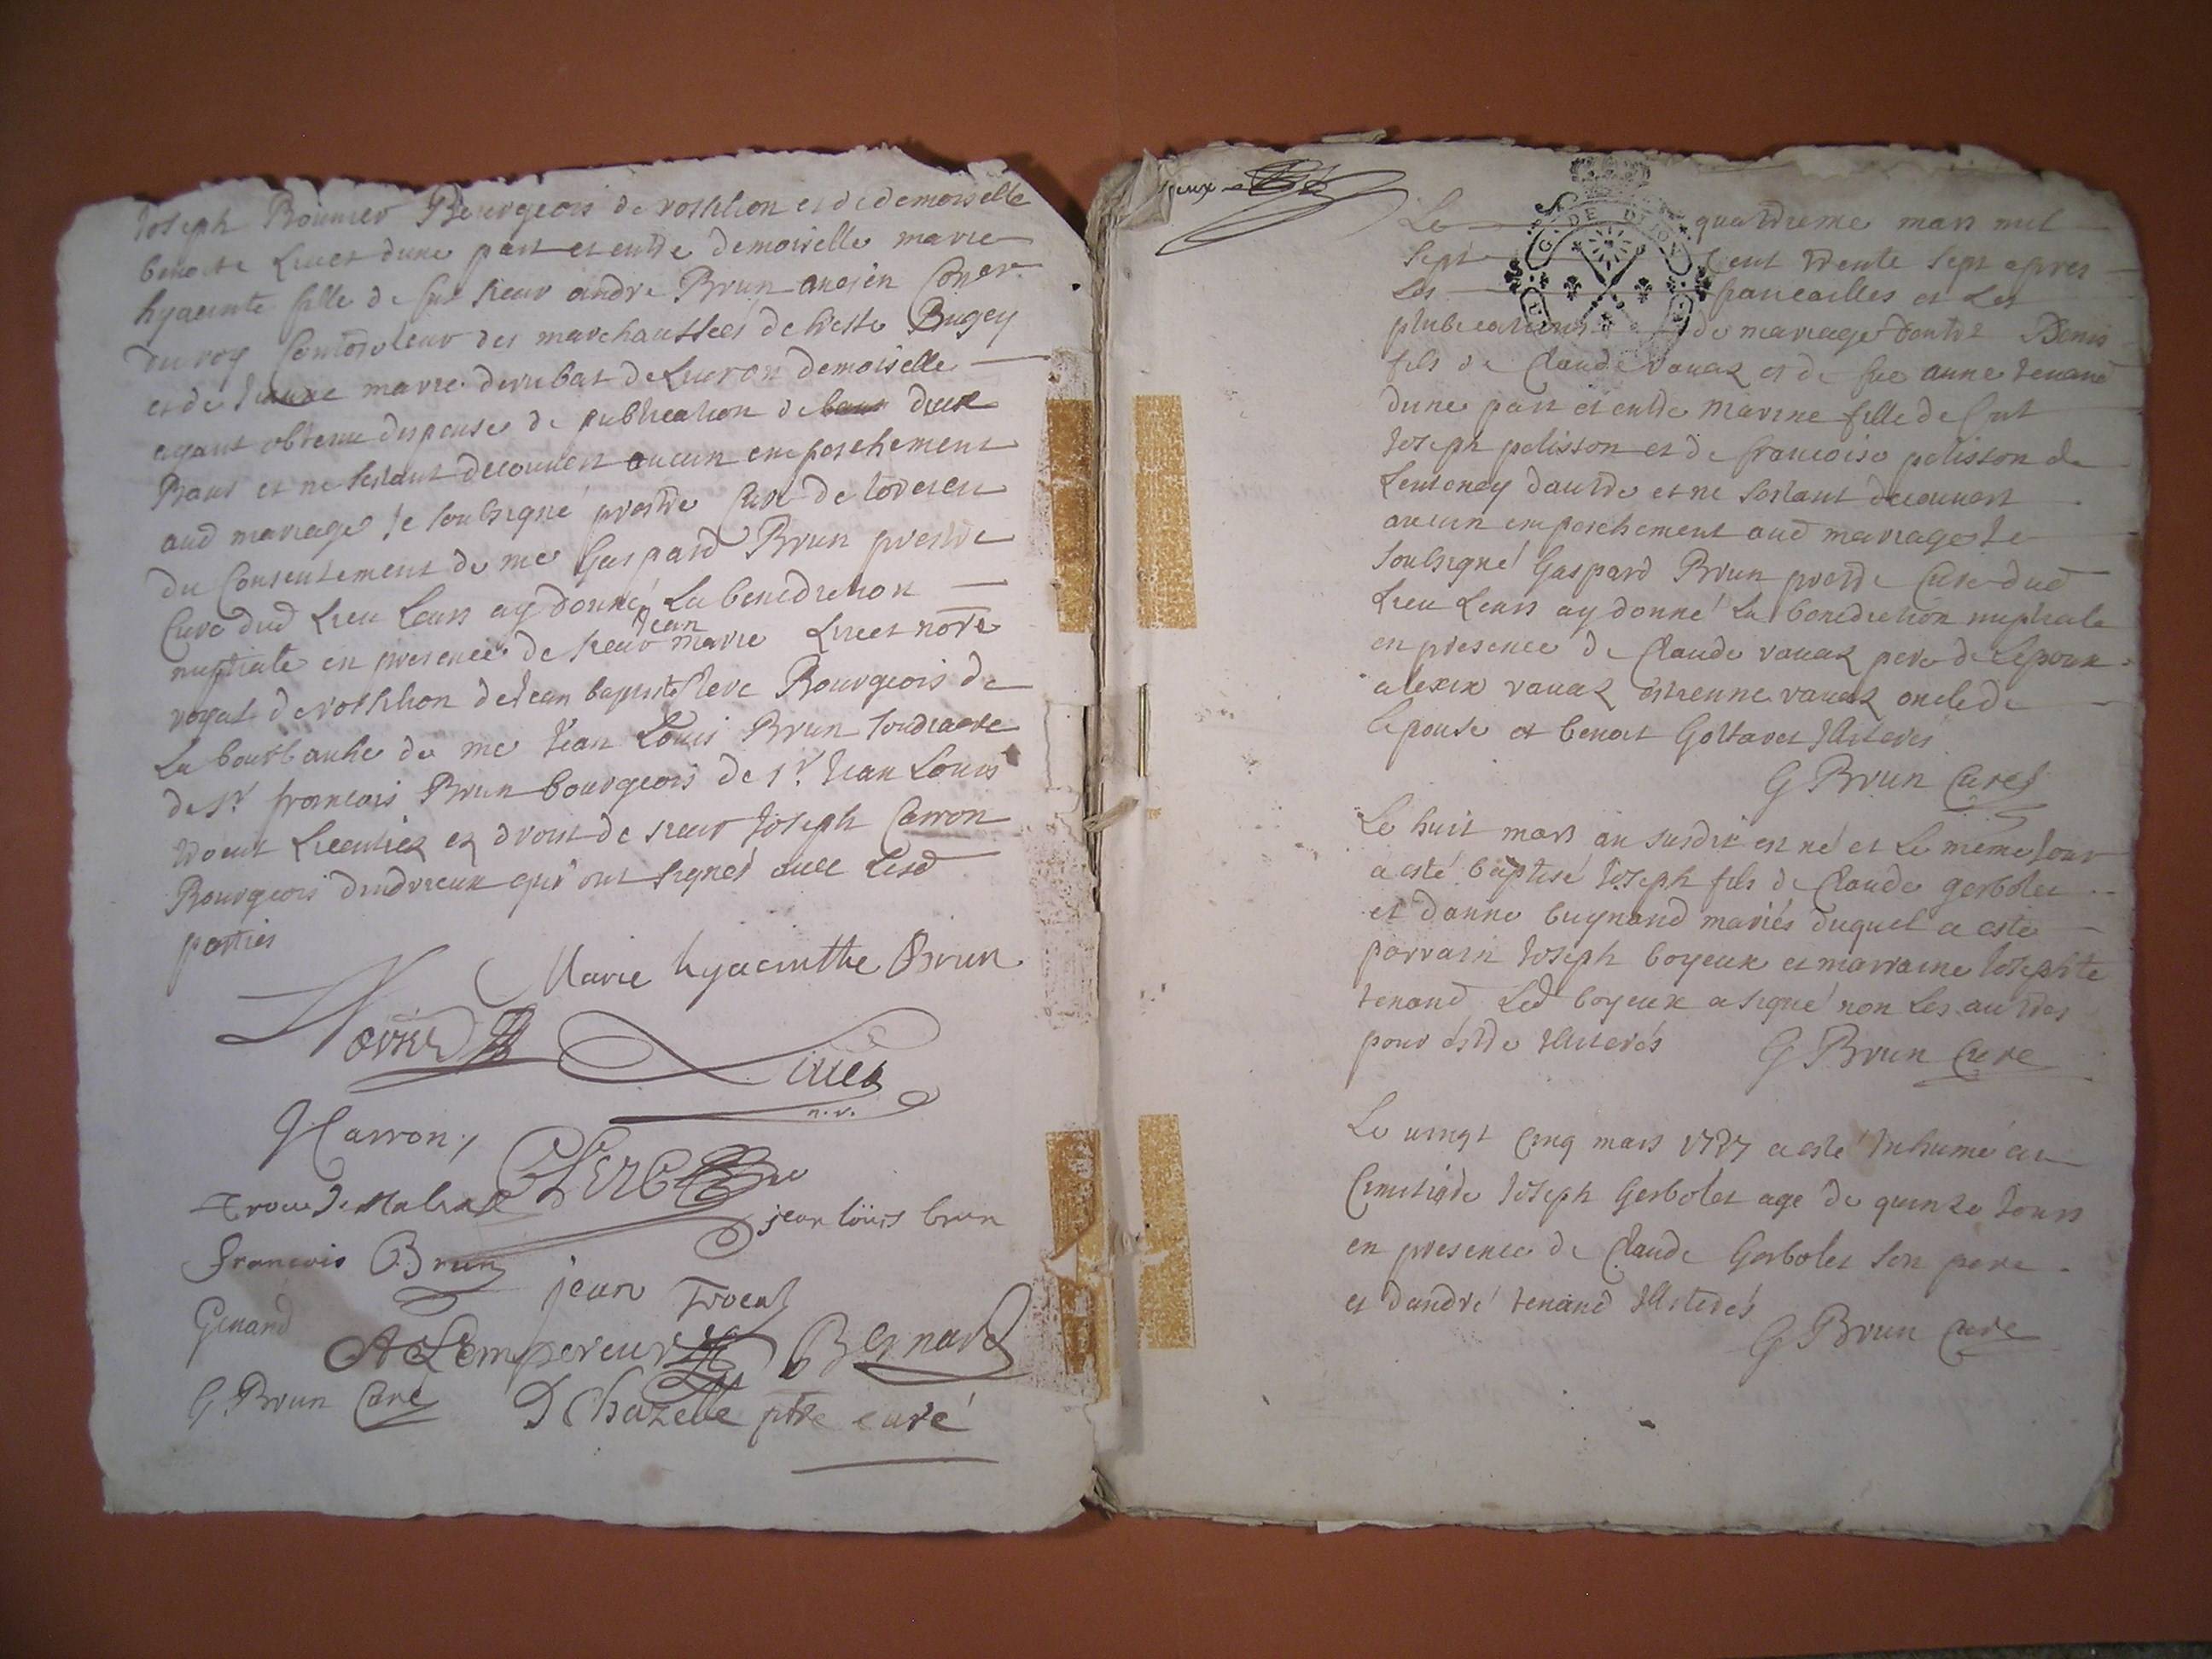 Joseph Bonnier Bourgeois de rossilion et de demoiselle
benoite Livet dune part et entre demoiselle marie
hyacinte fille de feu sieur andre Brun ancien Coner
du roy Controleur des marchaussées de bresse Bugey
et de Jeanne marie derubat de Livron demoiselle
ayant obtenu dispense de publication de deux
Bans et ne sestant decouvert aucun empeschement
aud mariage Je soubsigné prestre Curé de
du Consentement de me Gaspard Brun prestre
Curé dud Lieu Leurs ay donné La benediction
nuptiale en presence de sieur Jean marie Livet notre
royal de rossilion de Jean baptiste clerc Bourgeois de
La de me Jean Louis Brun soudiacre
de sr francois Brun bourgeois de sr Jean Louis
trocut Licentiez ez droit de sieur Joseph Carron
Bourgeois dandrieux qui ont signés avec Lesd
parties
Marie hyacinthe Brun
Livet
n.r.
JCarron
CLERC
jean loüis brun
francois Brun
jean Trocut
Genand
Lempereur Bernard
G Brun Curé D Chazelle ptre curé
Le quatrieme mars mil
G. DE DIJON
Sept Cent trente Sept apres
Les fiancailles et Les
publications de mariage dentre Denis
fils de Claude ravaz et de fue anne tenand
dune part et entre Marine fille de fut
Joseph pelisson et de francoise pelisson de
Lentenay dautre et ne sestant decouvert
aucun empeschement aud mariage Je
soubsigné Gaspard Brun prestre Curé dud
Lieu Leurs ay donné La benediction nuptiale
en presence de Claude ravaz pere de Lepoux
alexix ravaz estienne ravaz oncle de
Lepouse et benoit Goltavet Illiterés
G Brun Curé
Le huit mars an susdit est né et Le meme Jour
a esté baptisé Joseph fils de Claude gerbolet
et danne buynand mariés duquel a esté
parrain Joseph boyeux et marraine Josephte
tenand Led boyeux a signé non Les autres
pour éstre Illiterés G Brun Curé
Le vingt Cinq mars 1737 a esté Inhumé au
Cimetiere Joseph Gerbolet agé de quinze Jours
en presence de Claude Gerbolet son pere
et dandré tenand Illiterés
G Brun Curé